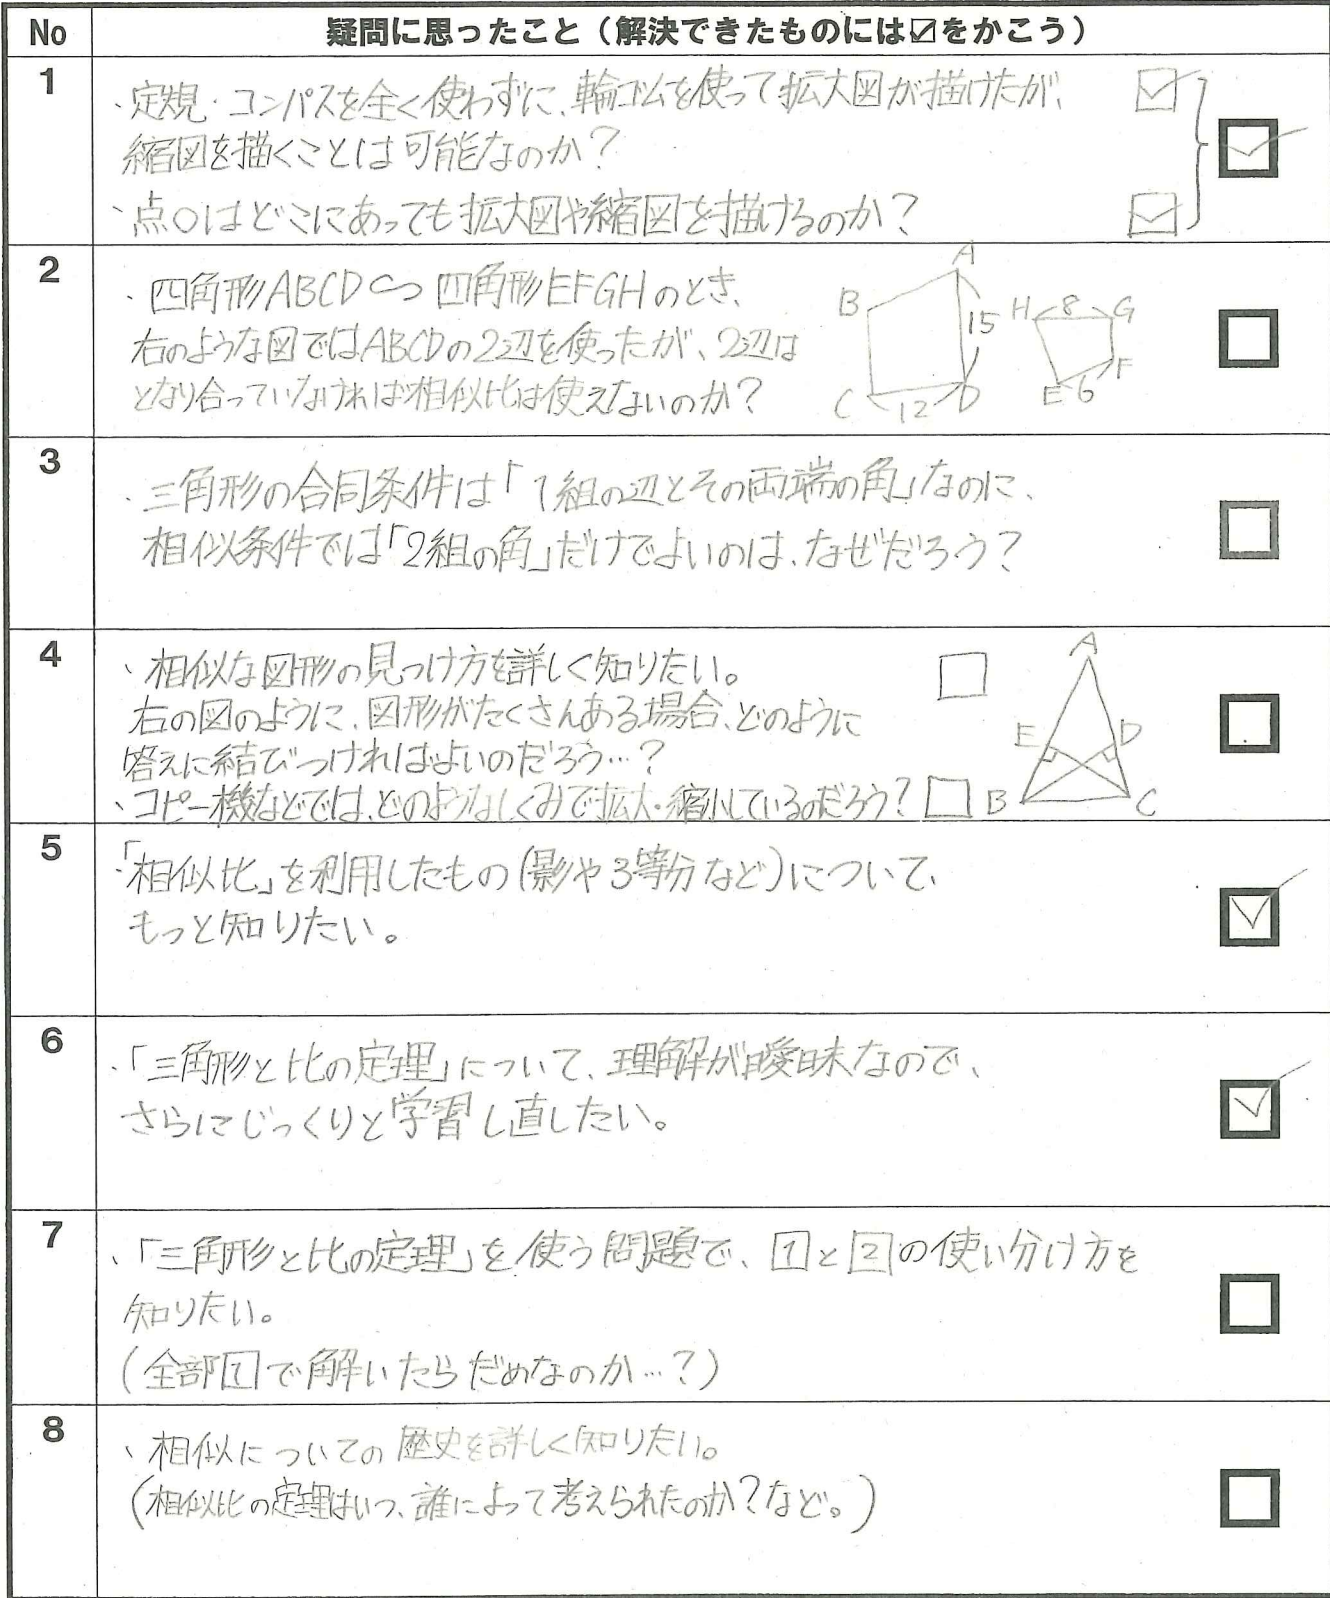 No 疑問に思ったこと（解決できたものには☑をかこう）
1
・定規・コンパスを全く使わずに、輪ゴムを使って拡大図が描けたが、
縮図を描くことは可能なのか？
・点Oはどこにあっても拡大図や縮図を描けるのか？
2
・四角形ABCD∽四角形EFGHのとき、
右のような図ではABCDの2辺を使ったが、2辺は
となり合っていなければ相似比は使えないのか？
A
B
15
C
12
D
H
8
G
F
E
6
3
・三角形の合同条件は「1組の辺とその両端の角」なのに、
相似条件では「2組の角」だけでよいのは、なぜだろう？
4
・相似な図形の見つけ方を詳しく知りたい。
右の図のように、図形がたくさんある場合、どのように
答えに結びつければよいのだろう…？
・コピー機などでは、どのようなしくみで拡大・縮小しているのだろう？
A
E
D
B
C
5
・「相似比」を利用したもの(影や3等分など)について、
もっと知りたい。
6
・「三角形と比の定理」について、理解が曖昧なので、
さらにじっくりと学習し直したい。
7
・「三角形と比の定理」を使う問題で、1と2の使い分け方を
知りたい。
(全部1で解いたらだめなのか…？)
8
・相似についての歴史を詳しく知りたい。
(相似比の定理はいつ、誰によって考えられたのか？など。)